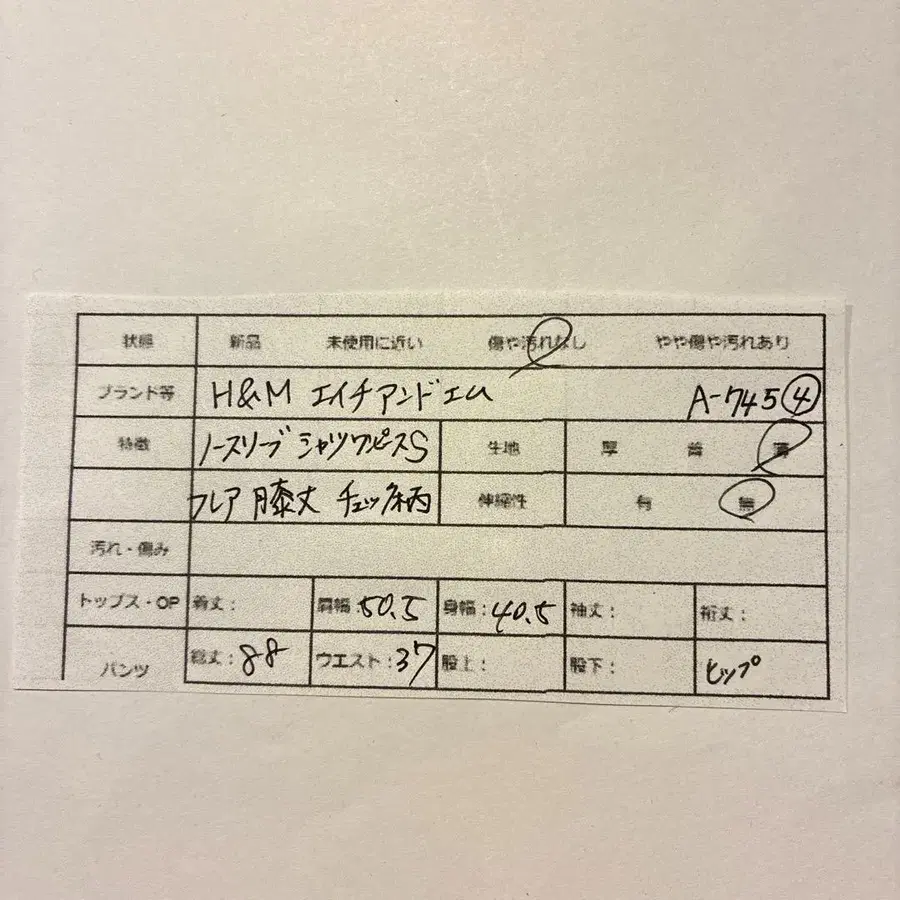 状態 新品 未使用に近い 傷や汚れなし やや傷や汚れあり
ブランド等 H&M エイチアンドエム A-745④
特徴 ノースリーブ シャツワンピースS 生地 厚 普 薄
フレア 膝丈 チェック柄 伸縮性 有 無
汚れ・傷み
トップス・OP 着丈: 肩幅:50.5 身幅:40.5 袖丈: 裄丈:
パンツ 総丈:88 ウエスト:37 股上: 股下: ヒップ